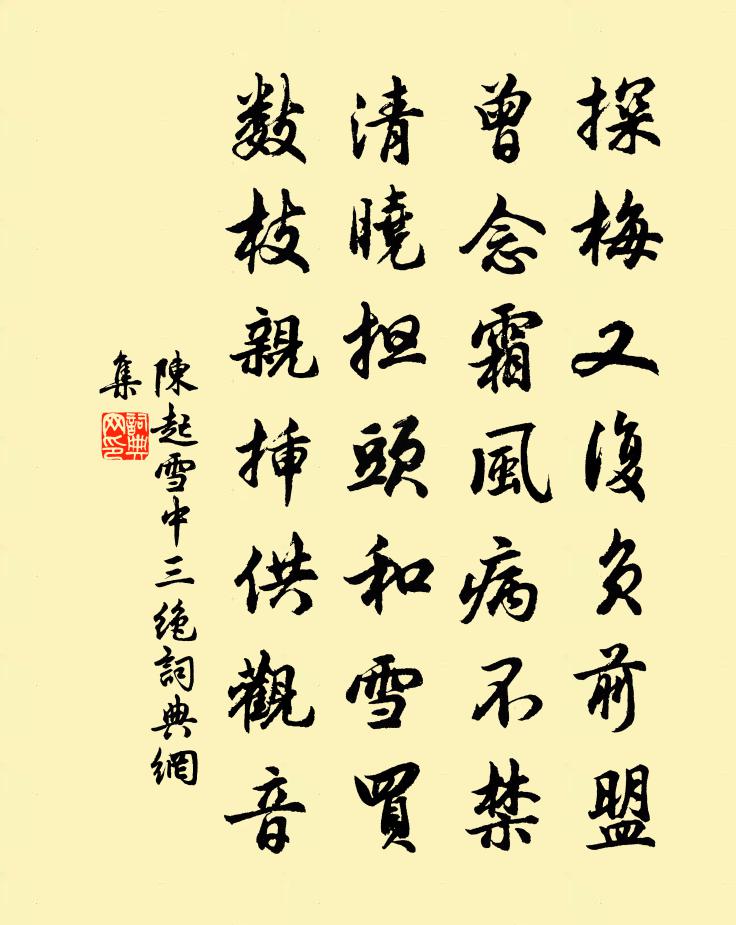 探梅又復負前盟
曾念霜風病不禁
清曉担頭和雪買
数枝親挿供觀音
陳起雪中三絶詞典網
集
詞典
网印